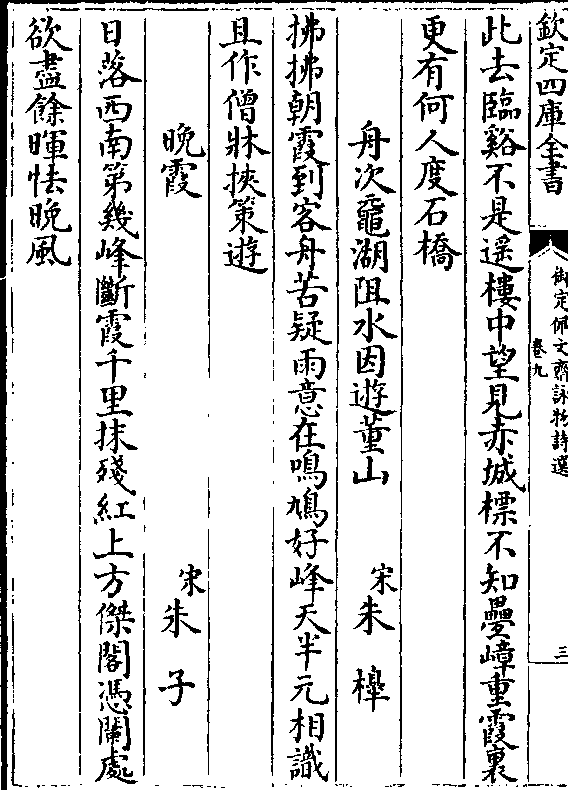 欽定四庫全書
御定佩文齋詠物詩選
卷九
三
此去臨谿不是遥樓中望見赤城標不知疊嶂重霞裏
更有何人度石橋
舟次黿湖阻水因遊董山
宋朱槔
拂拂朝霞到客舟苦疑雨意在鳴鳩好峰天半元相識
且作僧牀挾策遊
晩霞
宋朱子
日落西南第幾峰斷霞千里抹殘紅上方傑閣憑闌處
欲盡餘暉怯晩風